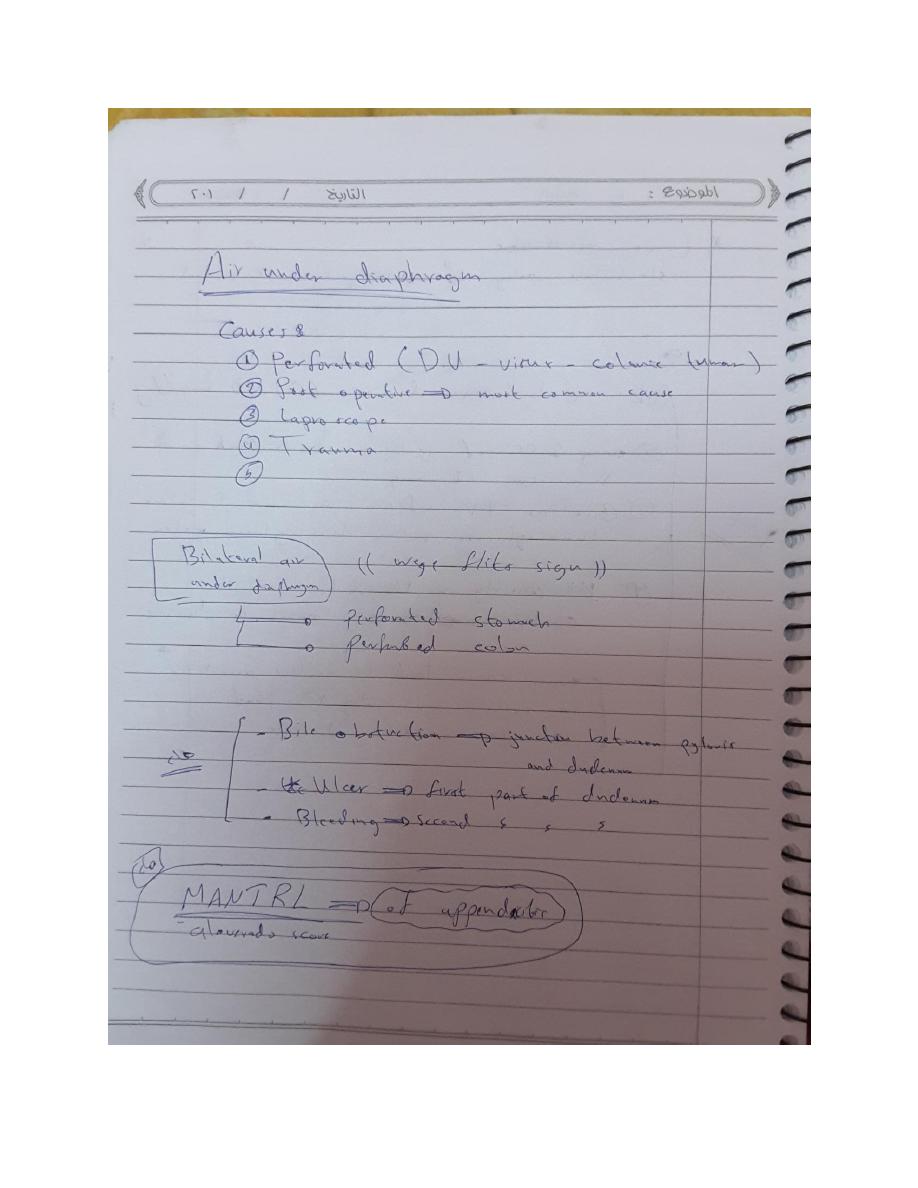 الموضوع :    التاريخ    /    /    ٢٠١
Air under diaphragm
Causes :
① Perforated ( DU - - colonic )
② Post operative ⇒ most common cause
③ Laproscope
④ Trauma
⑤
Bilateral air
under diaphragm
(( wege sign ))
perforated stomach
colon
- Bile obstuction ⇒ junction between pyloris
and dudenum
- Ulcer ⇒ first part of dudenum
- Bleeding ⇒ Second
MANTRL ⇒ of
score